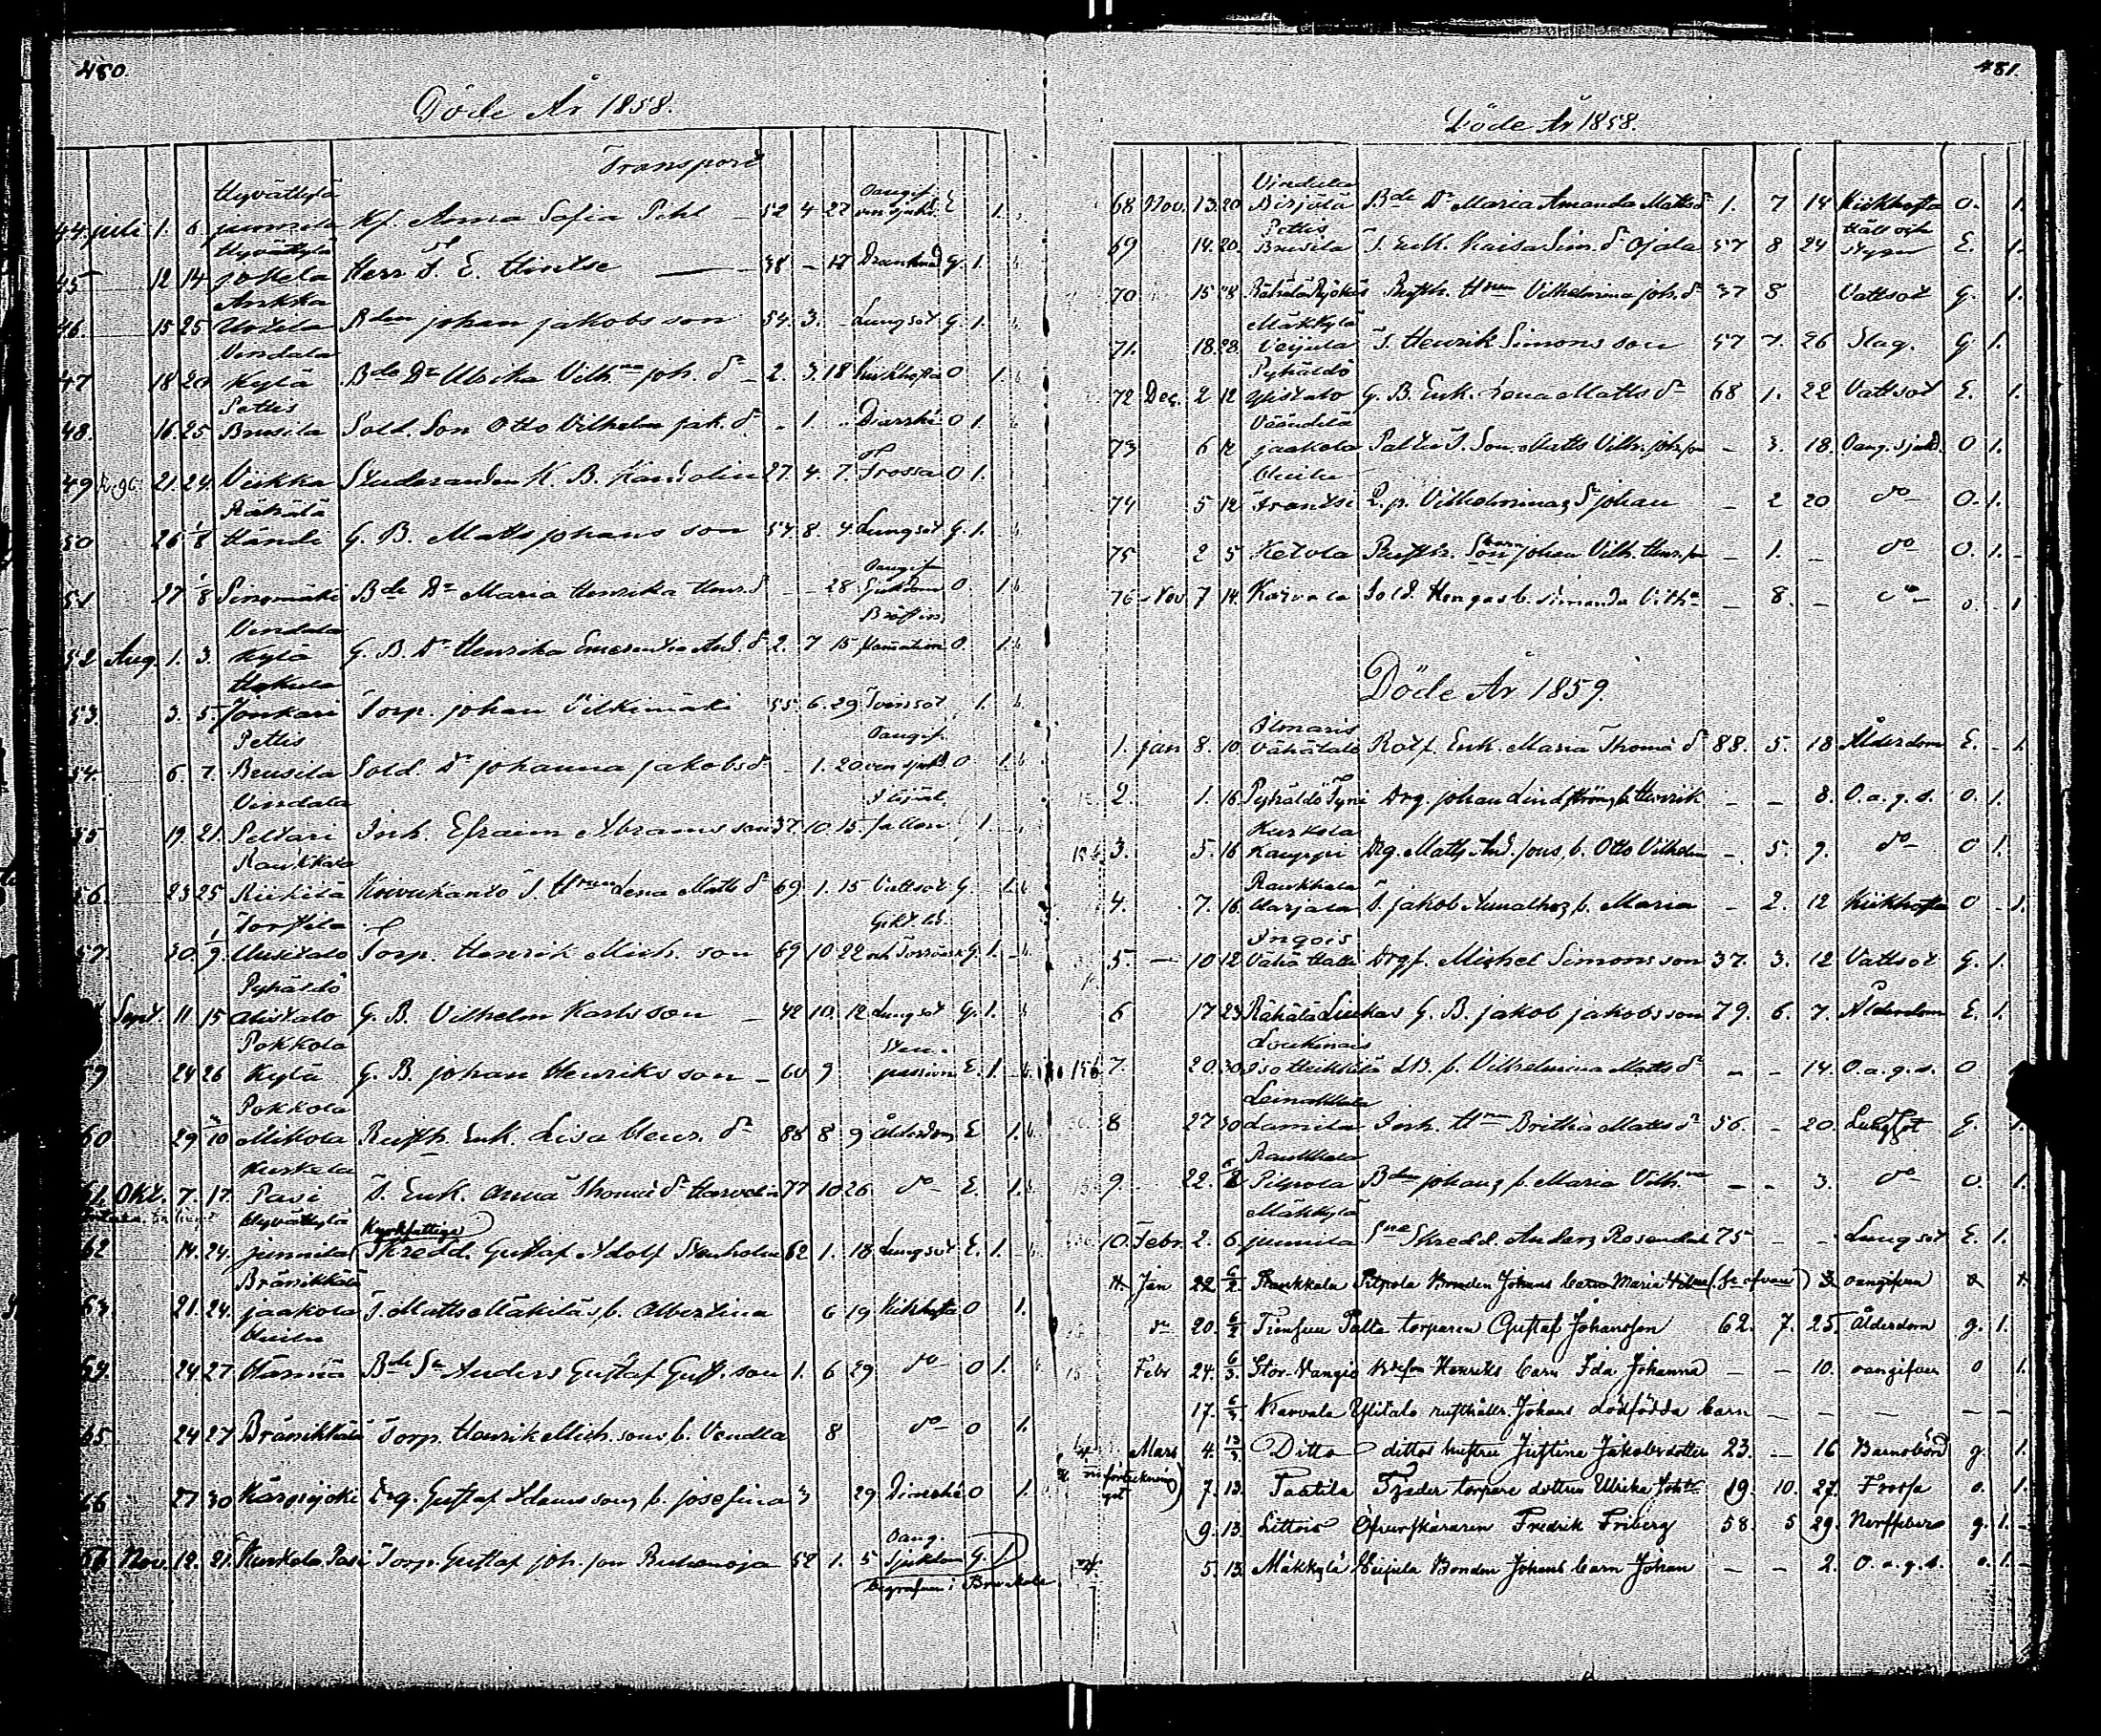 480.
Döde År 1858.
Transport
Hyvättylä
44. juli 1. 6. junnila Hf. Anna Sofia Pihl — 52 4 27 Oangif. ven sjukd. E 1.
Hyvättylä
45 12 14 Jokela Herr F. E. Hintse — 38 - 17 Drunknad G. 1.
Ankka
46. 15 25 Uotila Bden johan jakobs son 54. 3. - Lungsot G. 1.
Vindala
47 18 20 Kylä Bde Dr Ulrika Vilhna joh. dr 2. 3. 18 Kikhosta O 1.
Pettis
48. 16. 25 Brusila Sold. Son Otto Vilhelm jak. - 1. - Diarrhé O 1.
49 21. 24. Viikka Studeranden K. B. 27. 4. 7. Frossa O 1.
Rähälä
50 26 1/8 Händi G. B. Matts johans son 57. 8. 4 Lungsot G. 1.
51 27 1/8 Sinomäki Bde Dr Maria Henrika Henr. d - - 28 Oangif. Sjukdom O. 1.
Vindala
52 Aug. 1. 3. Kylä G. B. Dr Henrika And. dr 2. 7 15 Bröst in flamation O. 1.
53. 3. 5. Jonkari Torp. johan Vilkimäki 55. 6. 29 Tvinsot 1.
Pettis
54. 6. 7. Brusila Sold. Dr johanna jakobs d - 1. 20 Oangif. ven sjukd. O 1.
Vindala
55 19. 21. Peltari Inh. Efraim Abrams son 37. 10. 15. Ihjäl fallen 1.
Raukkala
56. 23 25 Riikilä Koivukanto T. Hrun Lena Matts dr 69. 1. 15 Vattsot G. 1.
Torttila
57. 30. 1/9. Uusitalo Torp. Henrik Mich. son 69 10 22 G. 1.
Pyhäldö
Sept. 11. 15 Alistalo G. B. Vilhelm Karls son — 42 10. 12 Lungsot G. 1.
Pokkola
59 24 26 Kylä G. B. johan Henriks son — 60 9 Sten- passion E. 1.
Pokkola
60. 29 Mikola Rusth. Enk. Lisa Henr. dr 88 8 9 Ålderdom E 1.
Kurkela
61. Okt. 7. 17. Pasi T. Enk. Anna Thomæ dr 77 10 26 do E. 1.
Hyvättylä Kyrkfattige
62 14. 24. junnila Skredd. Gustaf Adolf Stenholm 62 1. 18 Lungsot E. 1.
Bränikkälä
63. 21. 24. jaakola T. Matts Mäkiläs, b. Albertina 6 19 Kikhosta O 1.
64. 24. 27 Hannia Bde Sn Anders Gustaf Gust. son 1. 6 29 do O 1.
65 24 27 Bränikkälä Torp. Henrik Mich. sons, b. Vendla 8 do O 1.
66 27 30 Kärpijoki Drg. Gustaf Adams sons, b. josefina 3 29 Diarrhé O 1.
67 Nov. 12. 21. Kurkela Pasi Torp. Gustaf joh. son Ruhanoja 52 1. 5 Oang. sjukdom G. 1
begrafven i
481.
Döde År 1858.
Vindala
68 Nov. 13. 20 Birjola Bde Dr Maria Amanda Matts dr 1. 7 14 Kikhosta O. 1.
Pettis
69 14. 20. Brusila T. Enk. Kaisa Sim. dr Ojala 57 8 24 Håll och styng E. 1.
70 15 28 Rähälä Rusth. Hrun Vilhelmina joh. dr 37 8 Vattsot G. 1.
Mäkkylä
71. 18. 28. Veijula T. Henrik Simons son 57 7. 26 Slag. G 1.
Pyhäldö
72 Dec. 2 12 Ylistalo G. B. Enk. Lena Matts dr 68 1. 22 Vattsot E. 1.
Väändilä
73 6 12 jaakola Palta T. Son Matts Vilh. joh. son - 3. 18. Oang. sjukd. O 1.
74 5 12 Frantsi P. p. Vilhelminas S. johan - 2 20 do O. 1.
75 2 5 Ketola Rusth. Son johan Vilh. Henr. son - 1. - do O. 1.
76 Nov 7 14. Karvala Sold. Hengas b. Amanda Vilhna - 8. - do o. 1
Döde År 1859.
Ilmaris
1. jan 8. 10. Vähätalo Rotf. Enk. Maria Thomæ dr 88. 5. 18 Ålderdom E. 1.
2. 1. 16 Pyhäldö Tyni Drg. johan Lindströms b. Henrik - - 8. O. a. g. s. O. 1.
Kurkela
3. 5. 16 Kauppi Drg. Matts And. sons, b. Otto Vilhelm - 5. 9. do O 1.
Raukkala
4. 7. 16. Marjala T. jakob b. Maria - 2. 12 Kikhosta O 1.
Ingois
5. — 10 12 Vähä Halli Drgf. Michel Simons son 37. 3. 12 Vattsot G. 1.
6 17 23 Rähälä Liukas G. B. jakob jakobs son 79. 6. 7. Ålderdom E. 1.
Loukinais
7. 20. 30 Iso Heikkilä b. Vilhelmina Matts dr - - 14. O. a. g. s. O
Leinakkala
8 27 30 Lamila Inh. Hrun Britha Matts dr 56. - 20. Lungsot G. 1.
Raukkala
9 22. Pilpola Bden johans b. Maria Vilhna - - 3. do O. 1.
Mäkkylä
10. Febr. 2. 6 junnila Skredd. Anders Rosendal 75 - - Lungsot E. 1.
11. Jan 22 6/2. Raukkala Pilpola Bonden Johans barn Maria (se ofvan) 3 oangifven
do 20. 6/2 Tiensuu Palta torparen Gustaf Johansson 62. 7. 25. Ålderdom g. 1.
Febr 24. 6/3. Stor-Vangio Henriks barn Ida Johanna - - 10. oangifven o 1.
17. 6/3. Karvala Ylitalo rusthålls. Johans dödfödda barn — — — —
Mars 4. 13/3 Ditto dittos hustru Justina Jakobsdotter 23. - 16 Barnsbörd g. 1.
7. 13. Taatila torpare dottren Ulrika Johdr 19. 10. 27. Frossa o. 1.
9. 13. Littois Fredrik Friberg 58. 5 29. Nervfeber g. 1.
5. 13. Mäkkylä Veijula Bonden Johans barn Johan - - 2. O. a. g. s. o. 1.